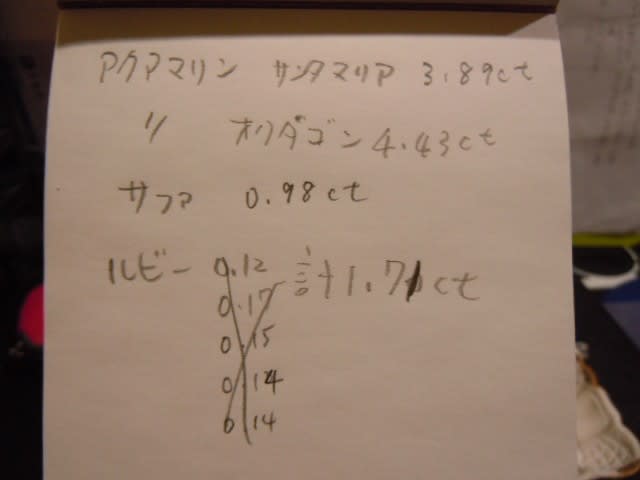 アクアマリン サンタマリア 3.89ct
〃 オクタゴン 4.43ct
サファ 0.98ct
ルビー 0.12 計1.71ct
0.17
0.15
0.14
0.14